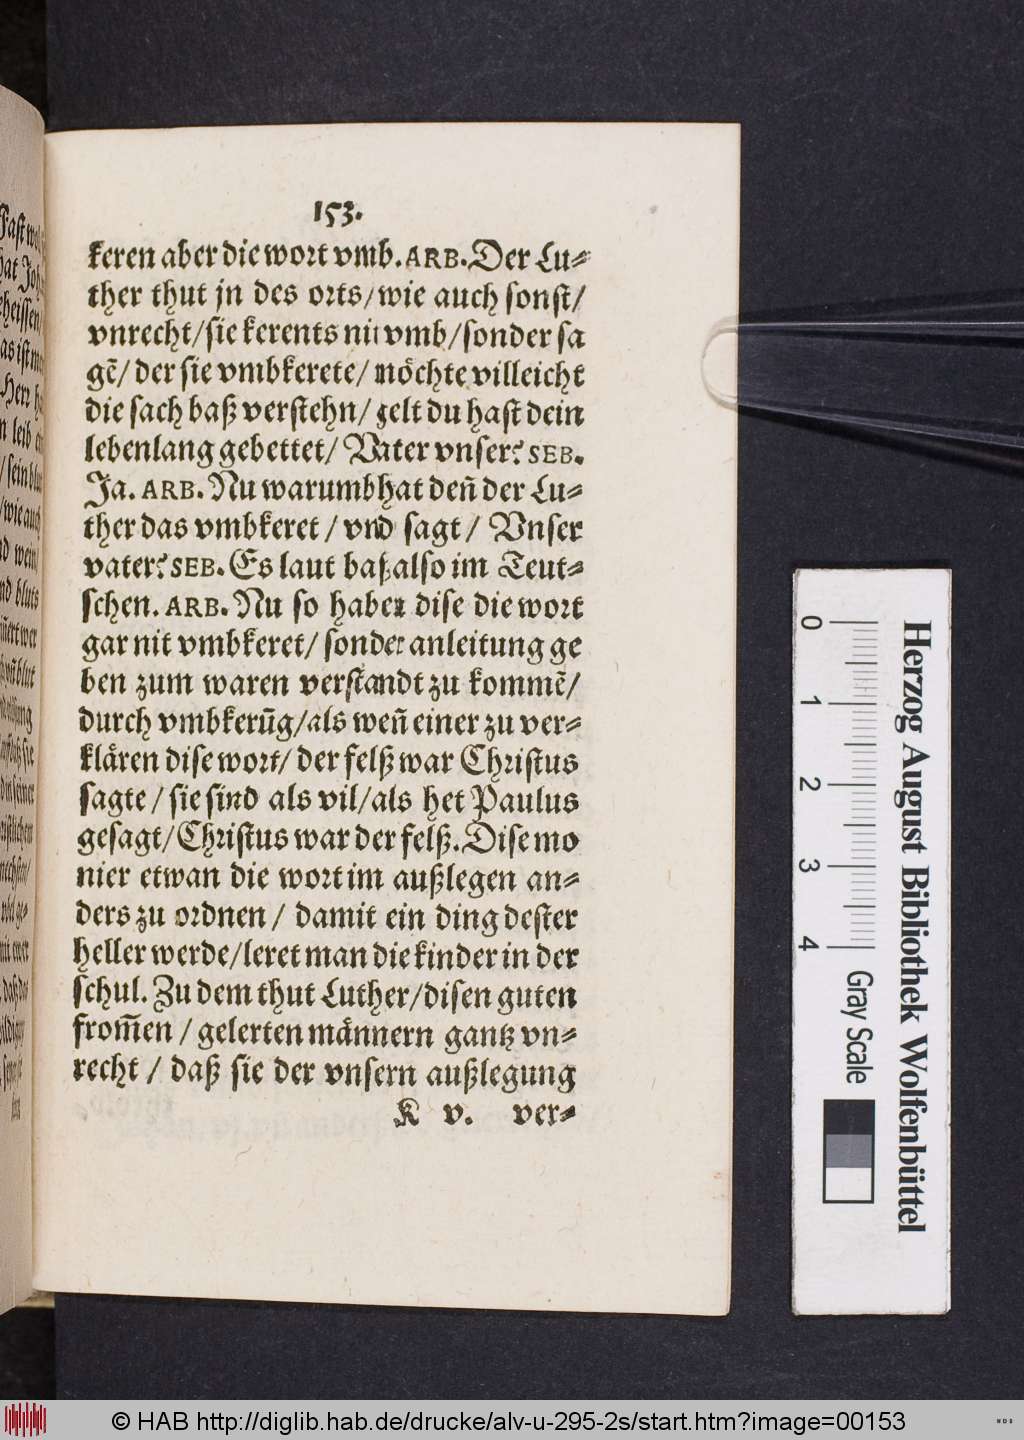 153.
keren aber die wort vmb. ARB. Der Lu-
ther thut jn des orts/ wie auch sonst/
vnrecht/ sie kerents nit vmb/ sonder sa
gẽ/ der sie vmbkerete/ möchte villeicht
die sach baß verstehn/ gelt du hast dein
lebenlang gebettet/ Vater vnser? SEB.
Ja. ARB. Nu warumb hat deñ der Lu-
ther das vmbkeret / vnd sagt / Vnser
vater? SEB. Es laut baß also im Teut-
schen. ARB. Nu so haben dise die wort
gar nit vmbkeret/ sonder anleitung ge
ben zum waren verstandt zu kommẽ/
durch vmbkerũg/ als weñ einer zu ver-
klären dise wort/ der felß war Christus
sagte / sie sind als vil/ als het Paulus
gesagt/ Christus war der felß. Dise mo
nier etwan die wort im außlegen an-
ders zu ordnen / damit ein ding dester
heller werde/ leret man die kinder in der
schul. Zu dem thut Luther/ disen guten
from̃en / gelerten männern gantz vn-
recht / daß sie der vnsern außlegung
K v. ver-
0 1 2 3 4 Gray Scale
Herzog August Bibliothek Wolfenbüttel
© HAB http://diglib.hab.de/drucke/alv-u-295-2s/start.htm?image=00153